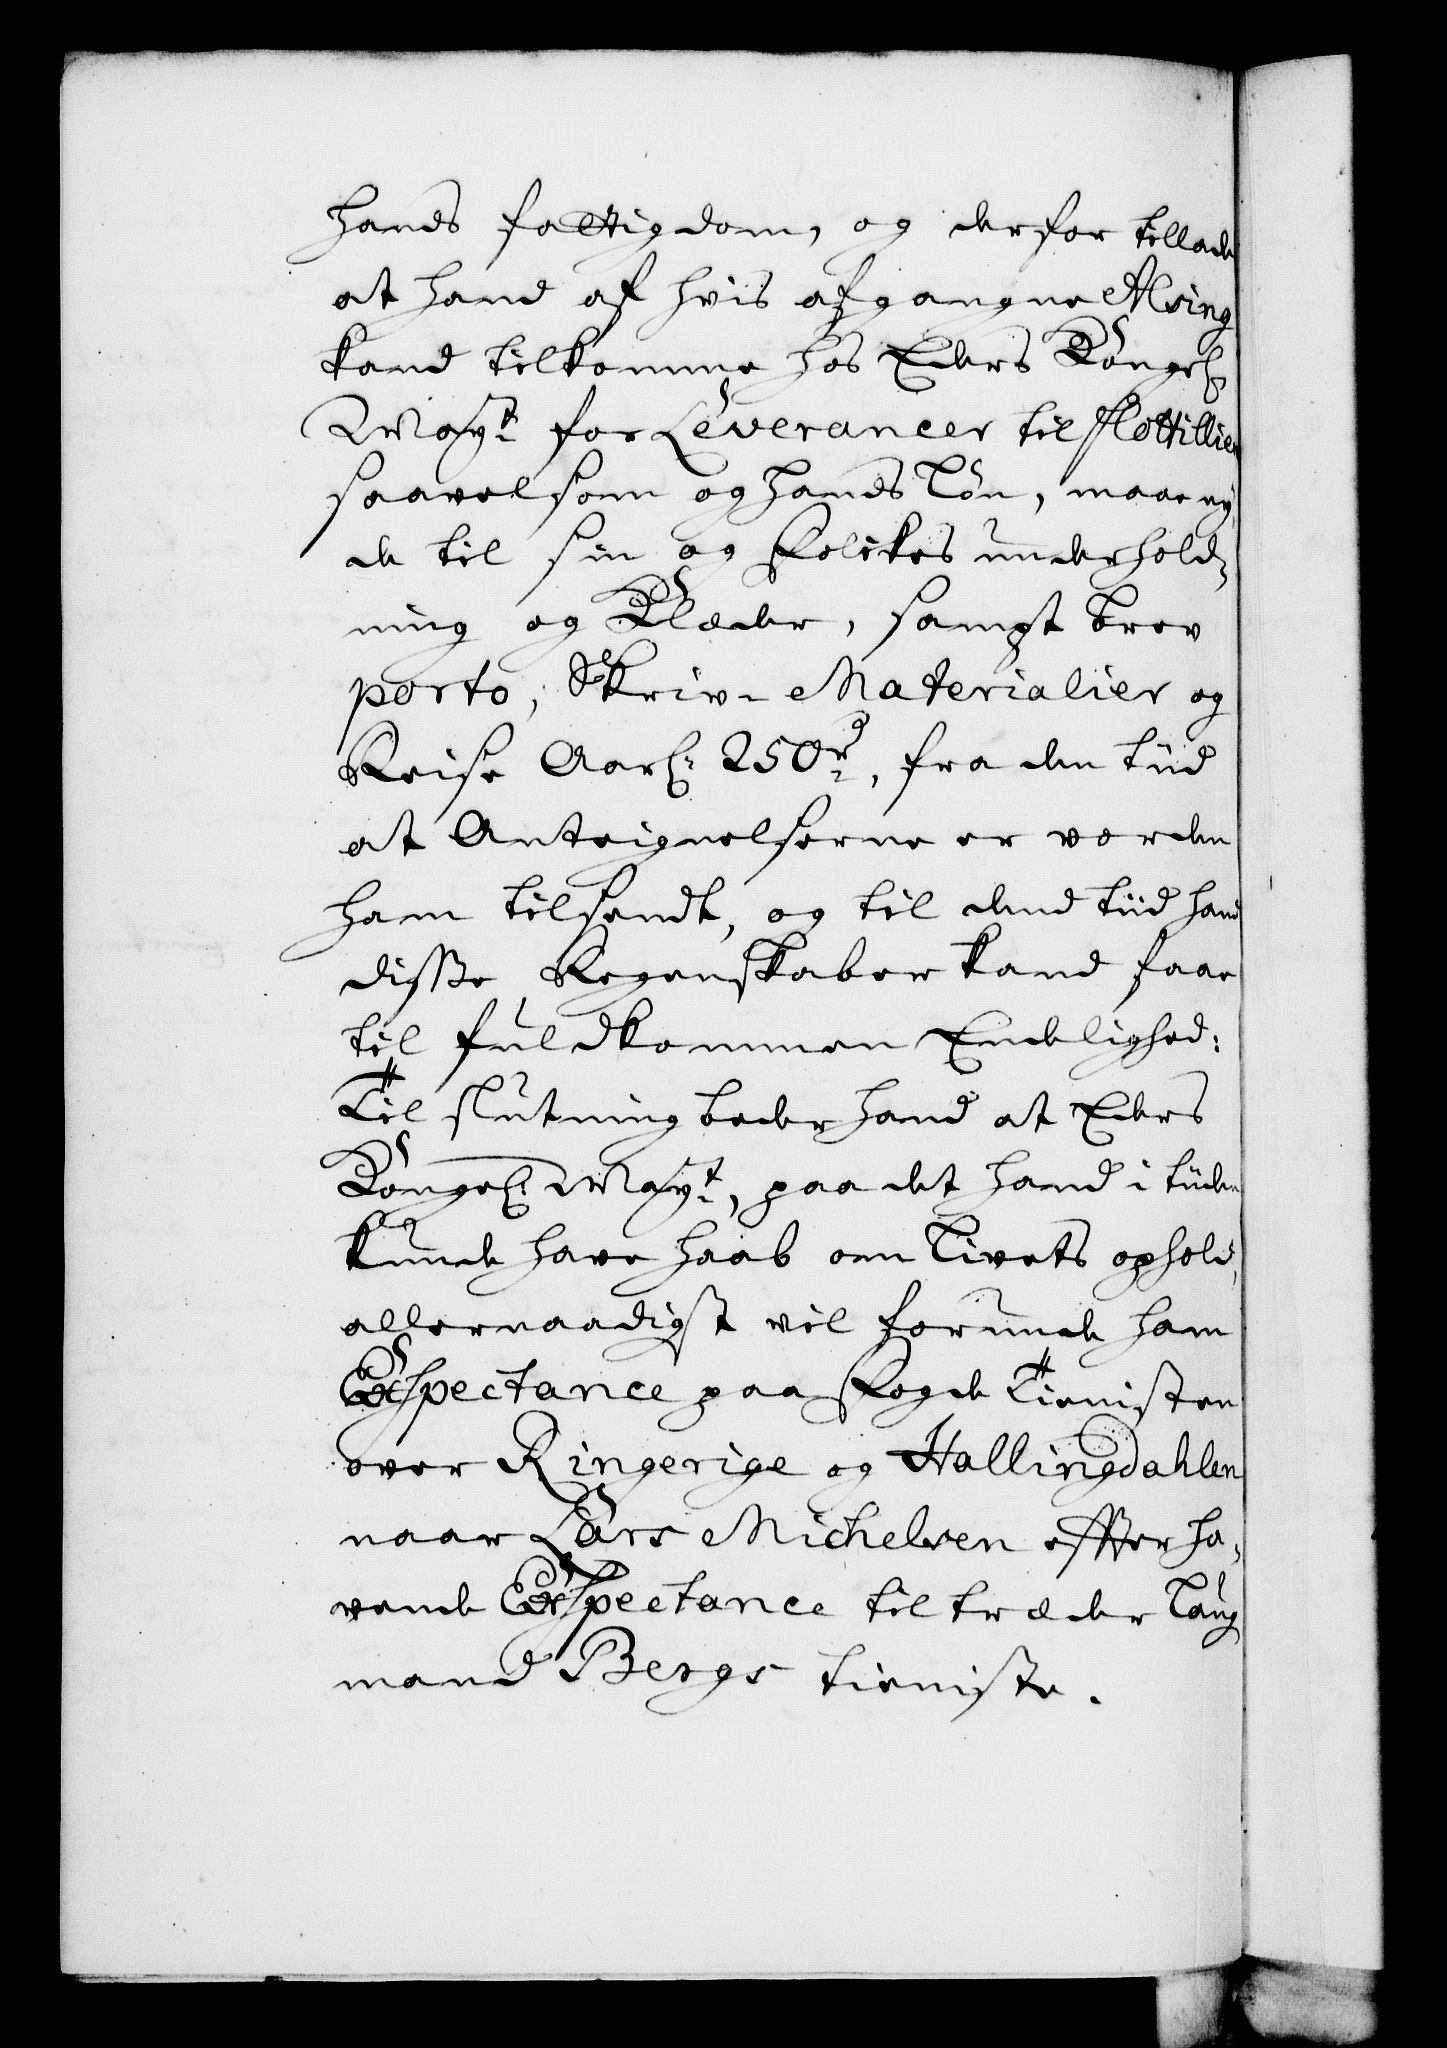 hands fattigdom, og derfor tillade
at hand af hvis afgangne Alsing
kand tilkomme hos Eders Kongel:
Mayt: for Leverancer til Flottillien
saavelsom og hands Løn, maae ny,
de til sin og Folckes underhold,
ning og Klæder, sampt brev
porto, Skriv- Materialier og
Reise Aarl: 250 rd:, fra den tiid
at Anteignelserne er vorden
ham tilsendt, og til dend tiid hand
disse Regenskaber kand faae
til fuldkommen Endelighed:
Til slutning beder hand at Eders
Kongel: Mayt:, paa det hand i tiiden
kunde have haab om Livets ophold,
allernaadigst vil forunde ham
Exspectance paa Fogde Tienisten
over Ringerige og Hallingdahlen
naar Lars Michelsen effter ha,
vende Exspectance tiltræder Laug
mand Bergs tieniste.